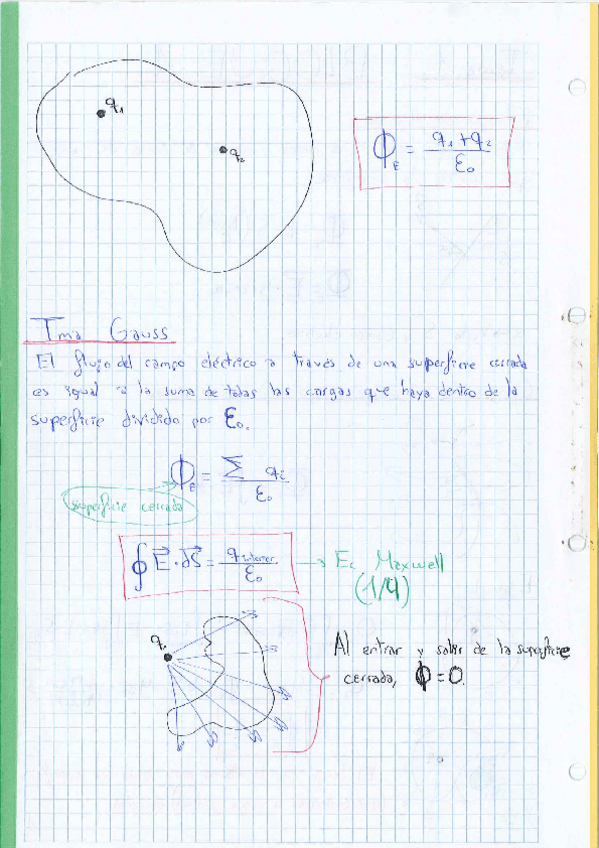 q₁
q₂
Φ_E = (q₁ + q₂) / ε₀
Tma Gauss
El flujo del campo eléctrico a través de una superficie cerrada
es igual a la suma de todas las cargas que haya dentro de la
superficie dividido por ε₀.
Φ_E = Σ qᵢ / ε₀
superficie cerrada
∮ E⃗ · dS⃗ = q interior / ε₀ → Ec Maxwell
(1/4)
q₁
Al entrar y salir de la superficie
cerrada, Φ = 0.